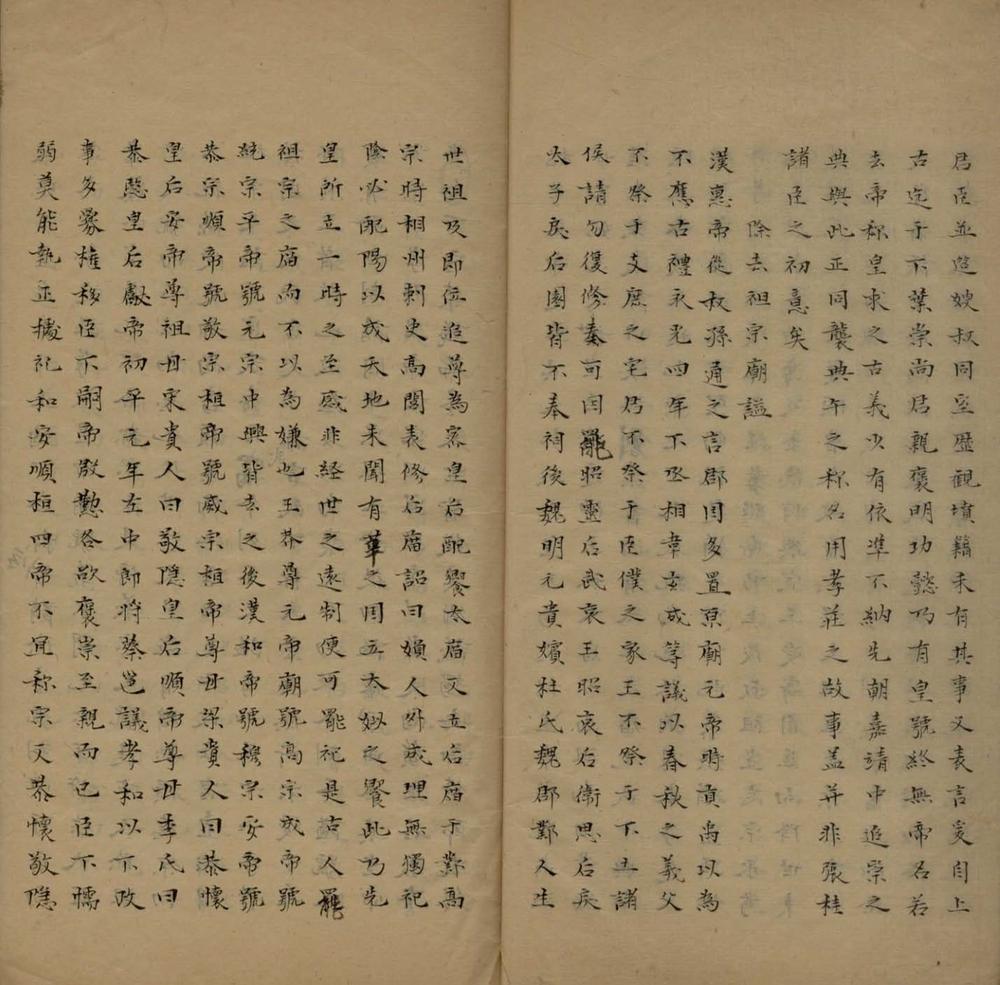 君臣並筵嫂叔同室歷觀墳籍未有其事又表言爰自上
古迄于下葉崇尚君親褒明功懿乃有皇號終無帝名若
去帝称皇求之古義少有依準不納先朝嘉靖中追崇之
典與此正同襲典午之称名用孝莊之故事盖并非張桂
諸臣之初意矣
除去祖宗廟謚
漢惠帝從叔孫通之言郡国多置原廟元帝時貢禹以為
不應古禮永光四年下丞相韋玄成等議以春秋之義父
不祭于支庶之宅君不祭于臣僕之家王不祭于下土諸
侯請勿復修奏可因罷昭靈后武哀王昭哀后衛思后戾
太子戾后園皆不奉祠後魏明元貴嬪杜氏魏郡鄴人生
世祖及即位追尊為密皇后配饗太廟又立后廟于鄴高
宗時相州刺史高閭表修后廟詔曰婦人外成理無獨祀
陰必配陽以成天地未聞有莘之国立太姒之饗此乃先
皇所立一時之至感非経世之遠制便可罷祀是古人罷
祖宗之廟而不以為嫌也王莽尊元帝廟號高宗成帝號
統宗平帝號元宗中興皆去之後漢和帝號穆宗安帝號
恭宗順帝號敬宗桓帝號威宗桓帝尊母梁貴人曰恭懷
皇后安帝尊祖母宋貴人曰敬隱皇后順帝尊母李氏曰
恭愍皇后獻帝初平元年左中郎將蔡邕議孝和以下政
事多舋權移臣下嗣帝殷勤各欲褒崇至親而已臣下懦
弱莫能執正據祀和安順桓四帝不宜称宗又恭懷敬隱